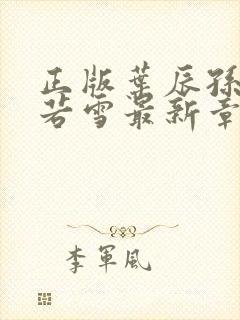 正版葉辰孫
若雪最新章
李軍風